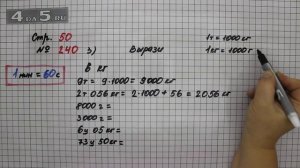 4 DA 5.RU
Стр. 50
№ 240 3) Вырази
1т = 1000кг
1кг = 1000г
1 мин = 60с
В кг
9т = 9·1000 = 9000 кг
2т 056 кг = 2·1000 + 56 = 2056 кг
8000 г =
3000 г =
6ц 05 кг =
73ц 50кг =